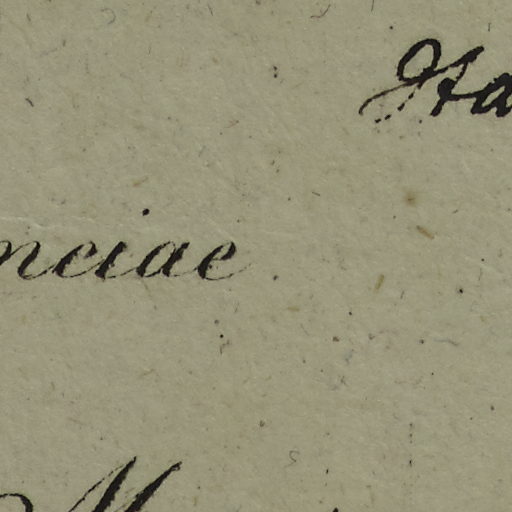 Ha
nciae
M